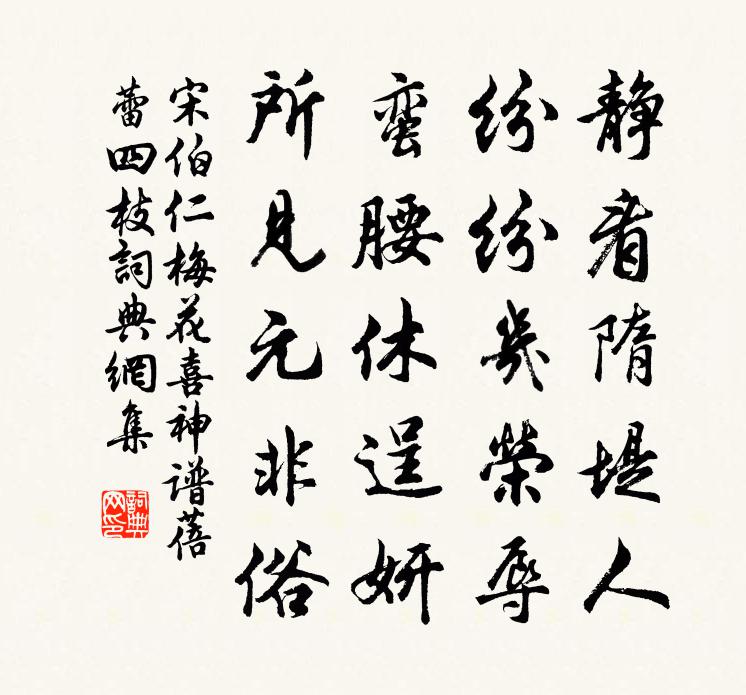 静看隋堤人
纷纷幾榮辱
蛮腰休逞妍
所見元非俗
宋伯仁梅花喜神谱蓓
蕾四枝詞典網集
詞典网印